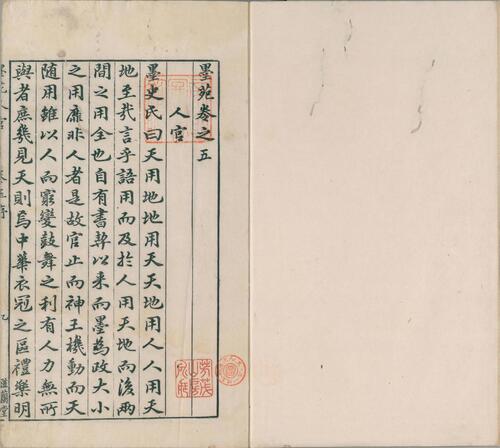 墨苑卷之五
人官
墨史氏曰天用地地用天天地用人人用天
地至哉言乎語用而及於人用天地而後兩
間之用全也自有書契以來而墨為政大小
之用靡非人者是故官止而神王機動而天
随用雖以人而窮變鼓舞之利有人力無所
與者庶幾見天則焉中華衣冠之區禮樂明
滋蘭堂